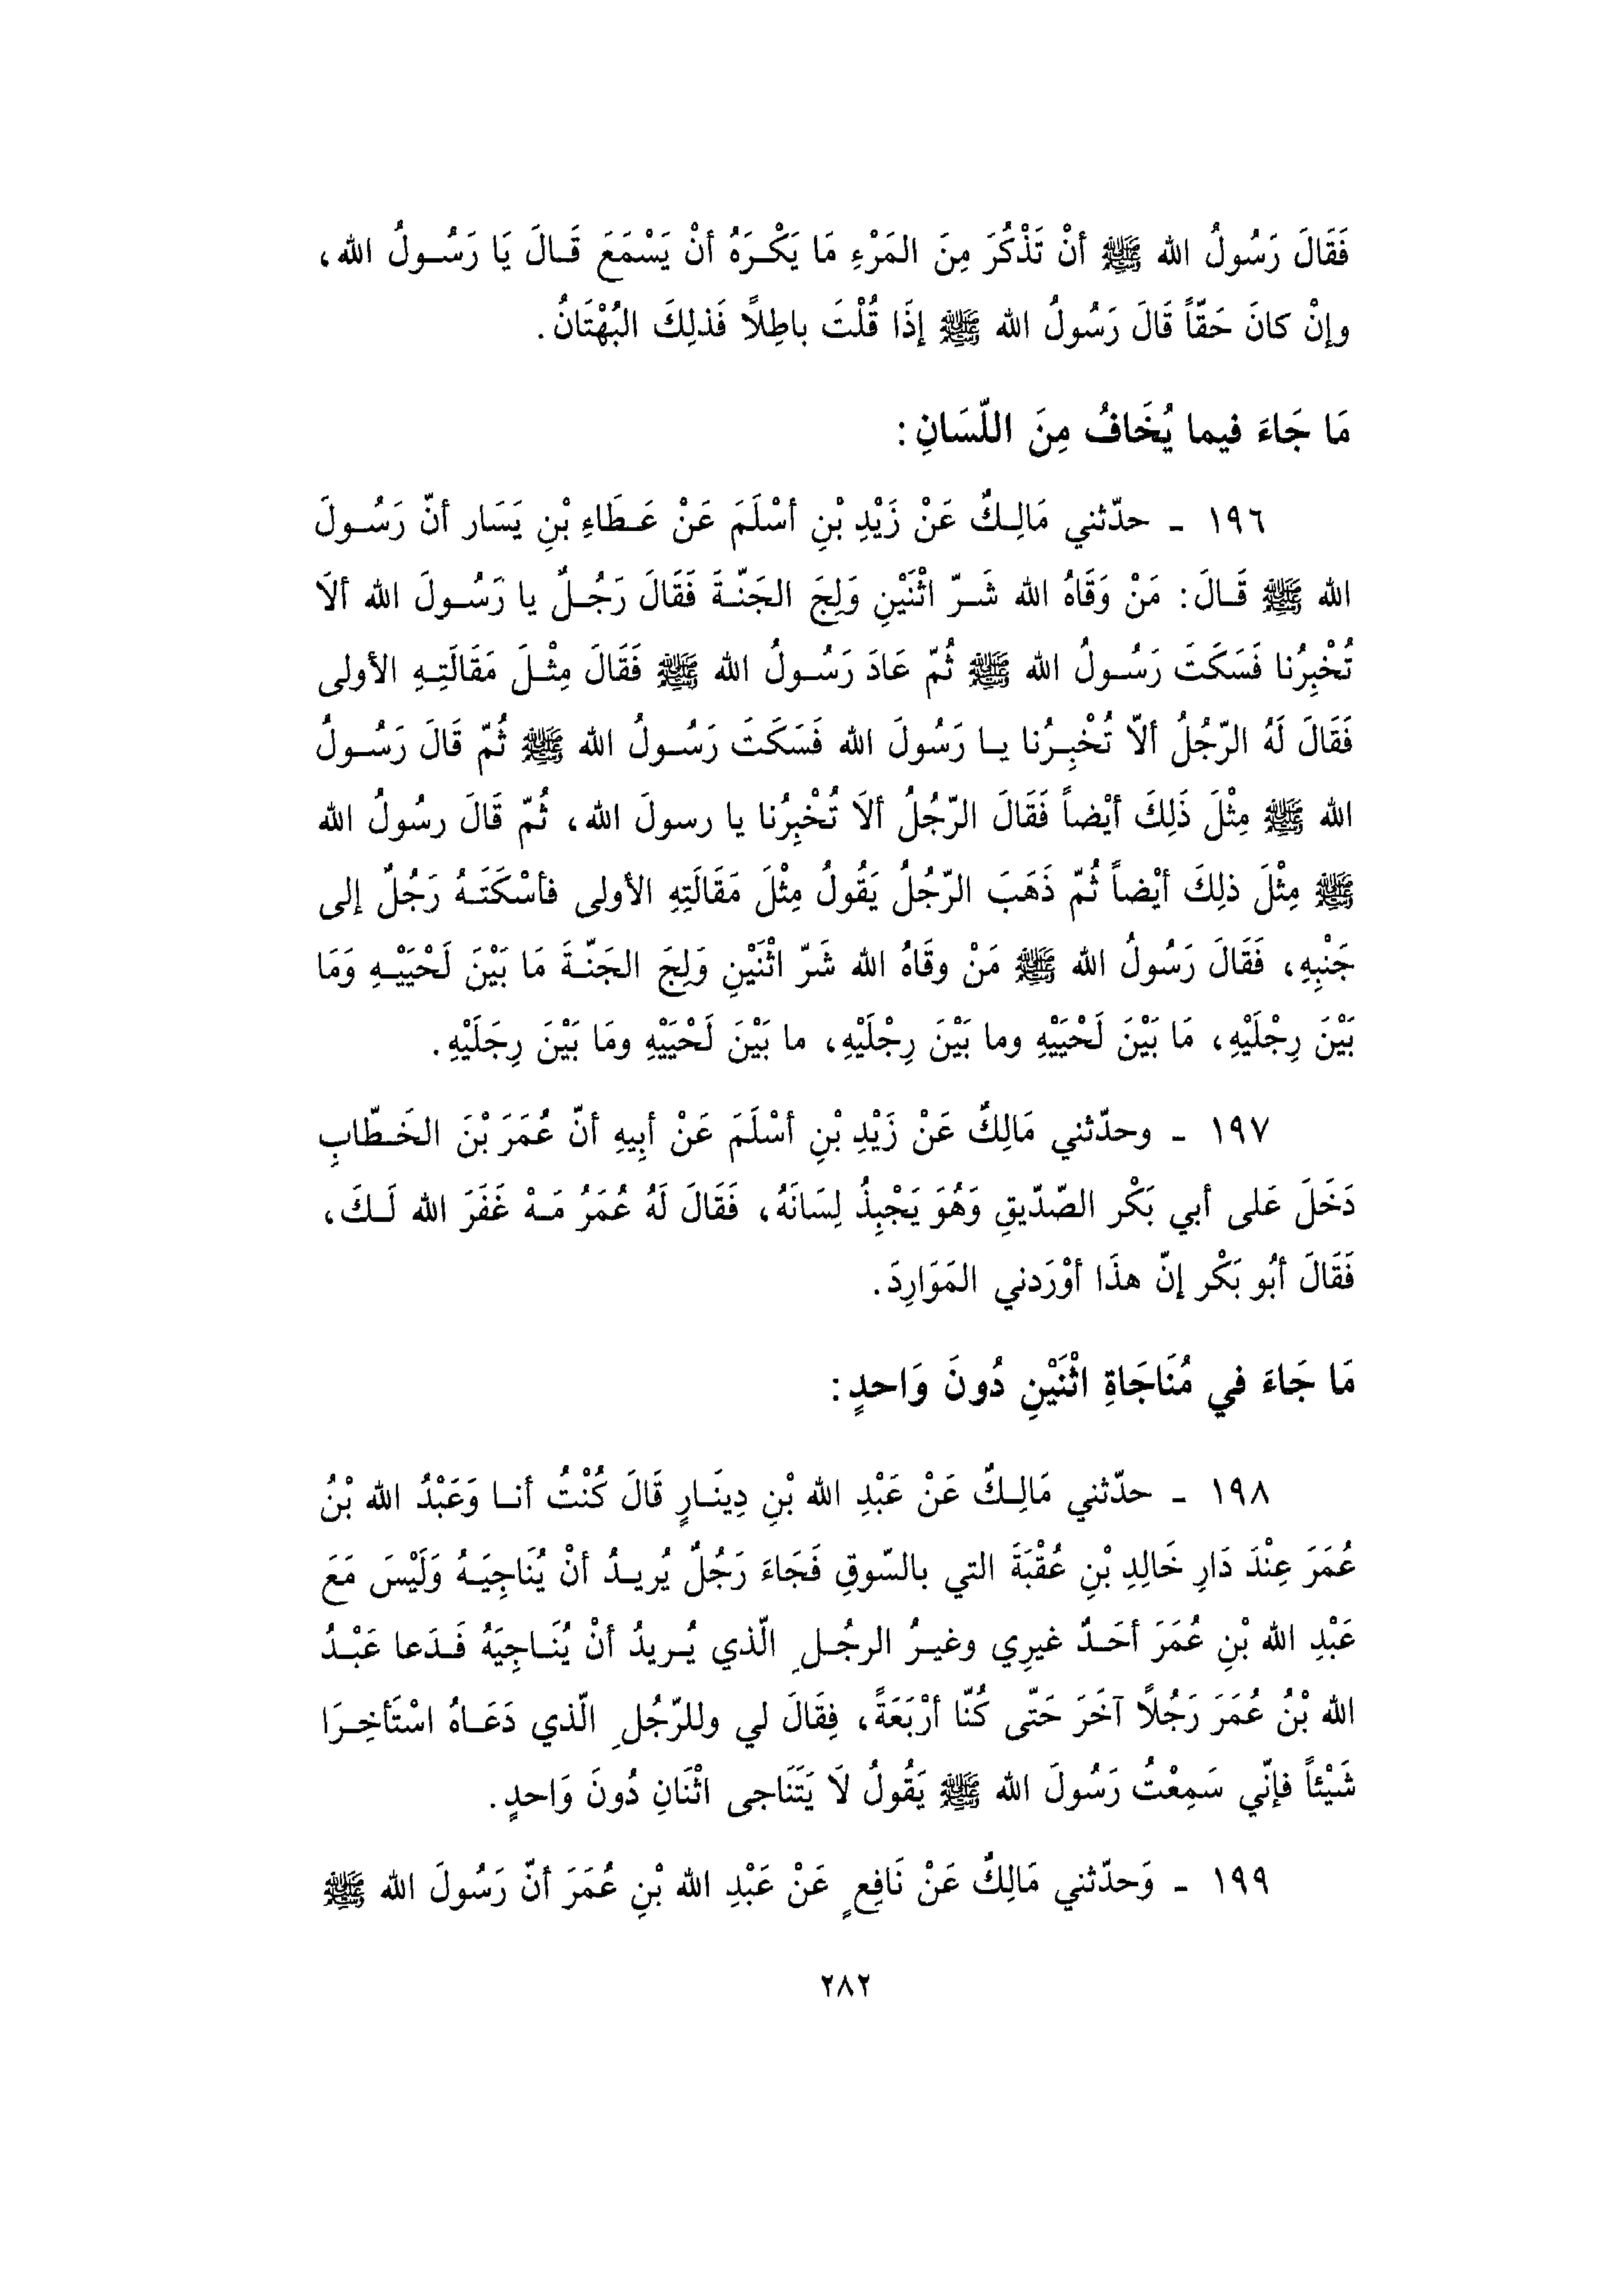 فَقَالَ رَسُولُ الله ﷺ أنْ تَذْكُرَ مِنَ المَرْءِ مَا يَكْرَهُ أنْ يَسْمَعَ قَالَ يَا رَسُولُ الله،
وإنْ كانَ حَقّاً قَالَ رَسُولُ الله ﷺ إذَا قُلْتَ باطِلاً فَذلِكَ البُهْتَانُ.
مَا جَاءَ فيما يُخَافُ مِنَ اللّسَانِ:
١٩٦ - حدّثني مَالِكٌ عَنْ زَيْدِ بْنِ أسْلَمَ عَنْ عَطَاءِ بْنِ يَسَار أنّ رَسُولَ
الله ﷺ قَالَ: مَنْ وَقَاهُ الله شَرّ اثْنَيْنِ وَلِجَ الجَنّةَ فَقَالَ رَجُلٌ يا رَسُولَ الله ألَا
تُخْبِرُنا فَسَكَتَ رَسُولُ الله ﷺ ثُمّ عَادَ رَسُولُ الله ﷺ فَقَالَ مِثْلَ مَقَالَتِهِ الأولى
فَقَالَ لَهُ الرّجُلُ ألاّ تُخْبِرُنا يا رَسُولَ الله فَسَكَتَ رَسُولُ الله ﷺ ثُمّ قَالَ رَسُولُ
الله ﷺ مِثْلَ ذَلِكَ أيْضاً فَقَالَ الرّجُلُ ألَا تُخْبِرُنا يا رسولَ الله، ثُمّ قَالَ رسُولُ الله
ﷺ مِثْلَ ذلِكَ أيْضاً ثُمّ ذَهَبَ الرّجُلُ يَقُولُ مِثْلَ مَقَالَتِهِ الأولى فأسْكَتَهُ رَجُلٌ إلى
جَنْبِهِ، فَقَالَ رَسُولُ الله ﷺ مَنْ وقَاهُ الله شَرّ اثْنَيْنِ وَلِجَ الجَنّةَ مَا بَيْنَ لَحْيَيْهِ وَمَا
بَيْنَ رِجْلَيْهِ، مَا بَيْنَ لَحْيَيْهِ وما بَيْنَ رِجْلَيْهِ، ما بَيْنَ لَحْيَيْهِ ومَا بَيْنَ رِجَلَيْهِ.
١٩٧ - وحدّثني مَالِكٌ عَنْ زَيْدِ بْنِ أسْلَمَ عَنْ أبِيهِ أنّ عُمَرَ بْنَ الخَطّابِ
دَخَلَ عَلى أبي بَكْر الصّدّيقِ وَهُوَ يَجْبِذُ لِسَانَهُ، فَقَالَ لَهُ عُمَرُ مَهْ غَفَرَ الله لَكَ،
فَقَالَ أبُو بَكْر إنّ هذَا أوْرَدني المَوَارِدَ.
مَا جَاءَ في مُنَاجَاةِ اثْنَيْنِ دُونَ وَاحدٍ:
١٩٨ - حدّثني مَالِكٌ عَنْ عَبْدِ الله بْنِ دِينَارٍ قَالَ كُنْتُ أنا وَعَبْدُ الله بْنُ
عُمَرَ عِنْدَ دَارِ خَالِدِ بْنِ عُقْبَةَ التي بالسّوقِ فَجَاءَ رَجُلٌ يُريدُ أنْ يُنَاجِيَهُ وَلَيْسَ مَعَ
عَبْدِ الله بْنِ عُمَرَ أحَدٌ غيرِي وغيرُ الرجُلِ الّذي يُريدُ أنْ يُنَاجِيَهُ فَدَعا عَبْدُ
الله بْنُ عُمَرَ رَجُلاً آخَرَ حَتّى كُنّا أرْبَعَةً، فِقَالَ لي وللرّجُلِ الّذي دَعَاهُ اسْتَأخِرَا
شَيْئاً فإنّي سَمِعْتُ رَسُولَ الله ﷺ يَقُولُ لَا يَتَنَاجى اثْنَانِ دُونَ وَاحدٍ.
١٩٩ - وَحدّثني مَالِكٌ عَنْ نَافِعٍ عَنْ عَبْدِ الله بْنِ عُمَرَ أنّ رَسُولَ الله ﷺ
٢٨٢